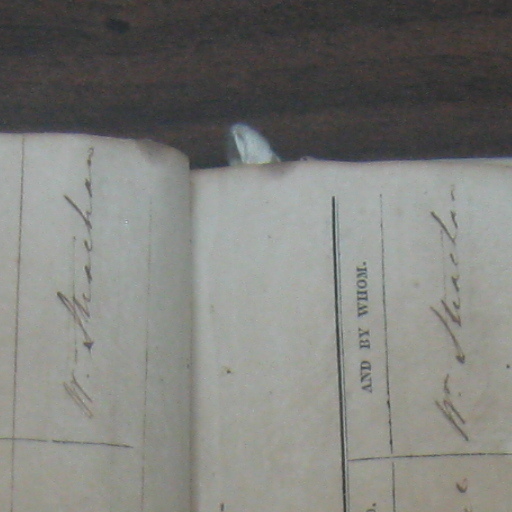 W. Strachan
AND BY WHOM.
Wm Strachan